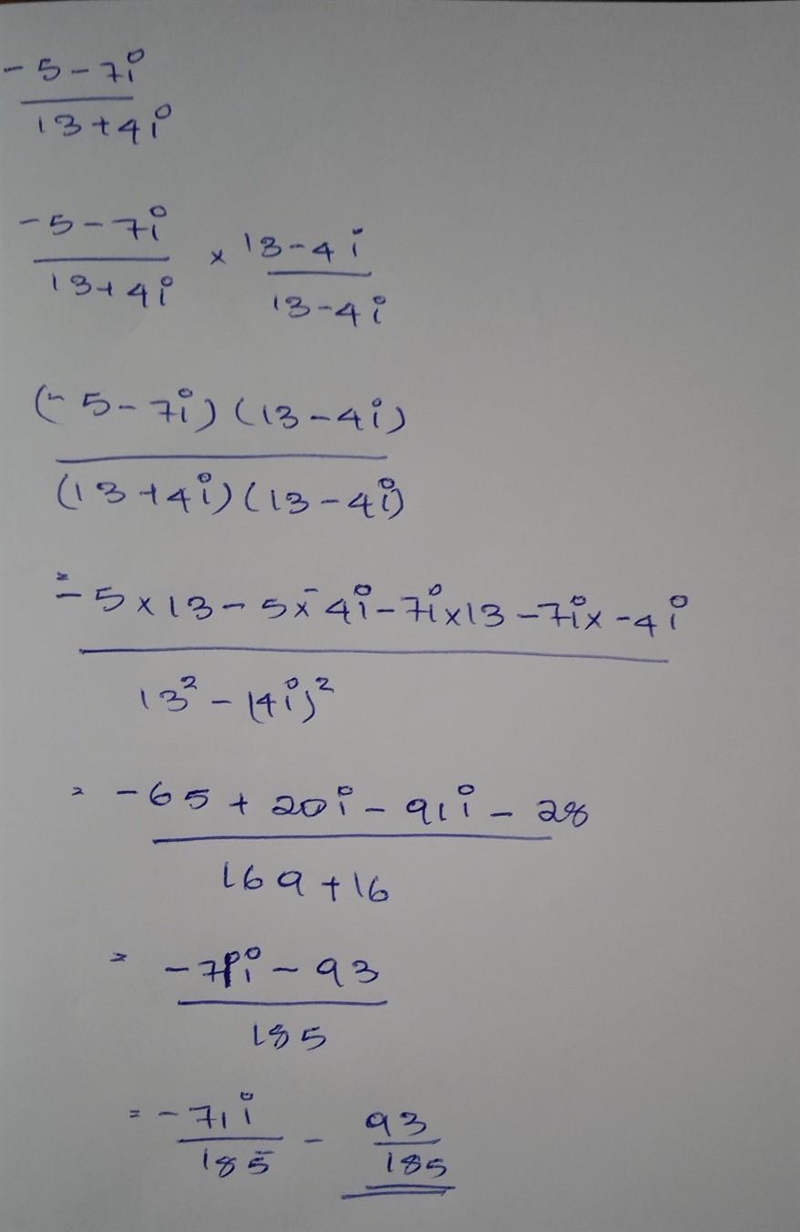 -5-7i
13+4i
-5-7i × 13-4i
13+4i 13-4i
(-5-7i)(13-4i)
(13+4i)(13-4i)
= -5×13-5×-4i-7i×13-7i×-4i
13²-(4i)²
= -65+20i-91i-28
169+16
= -71i-93
185
= -71i - 93
185 185